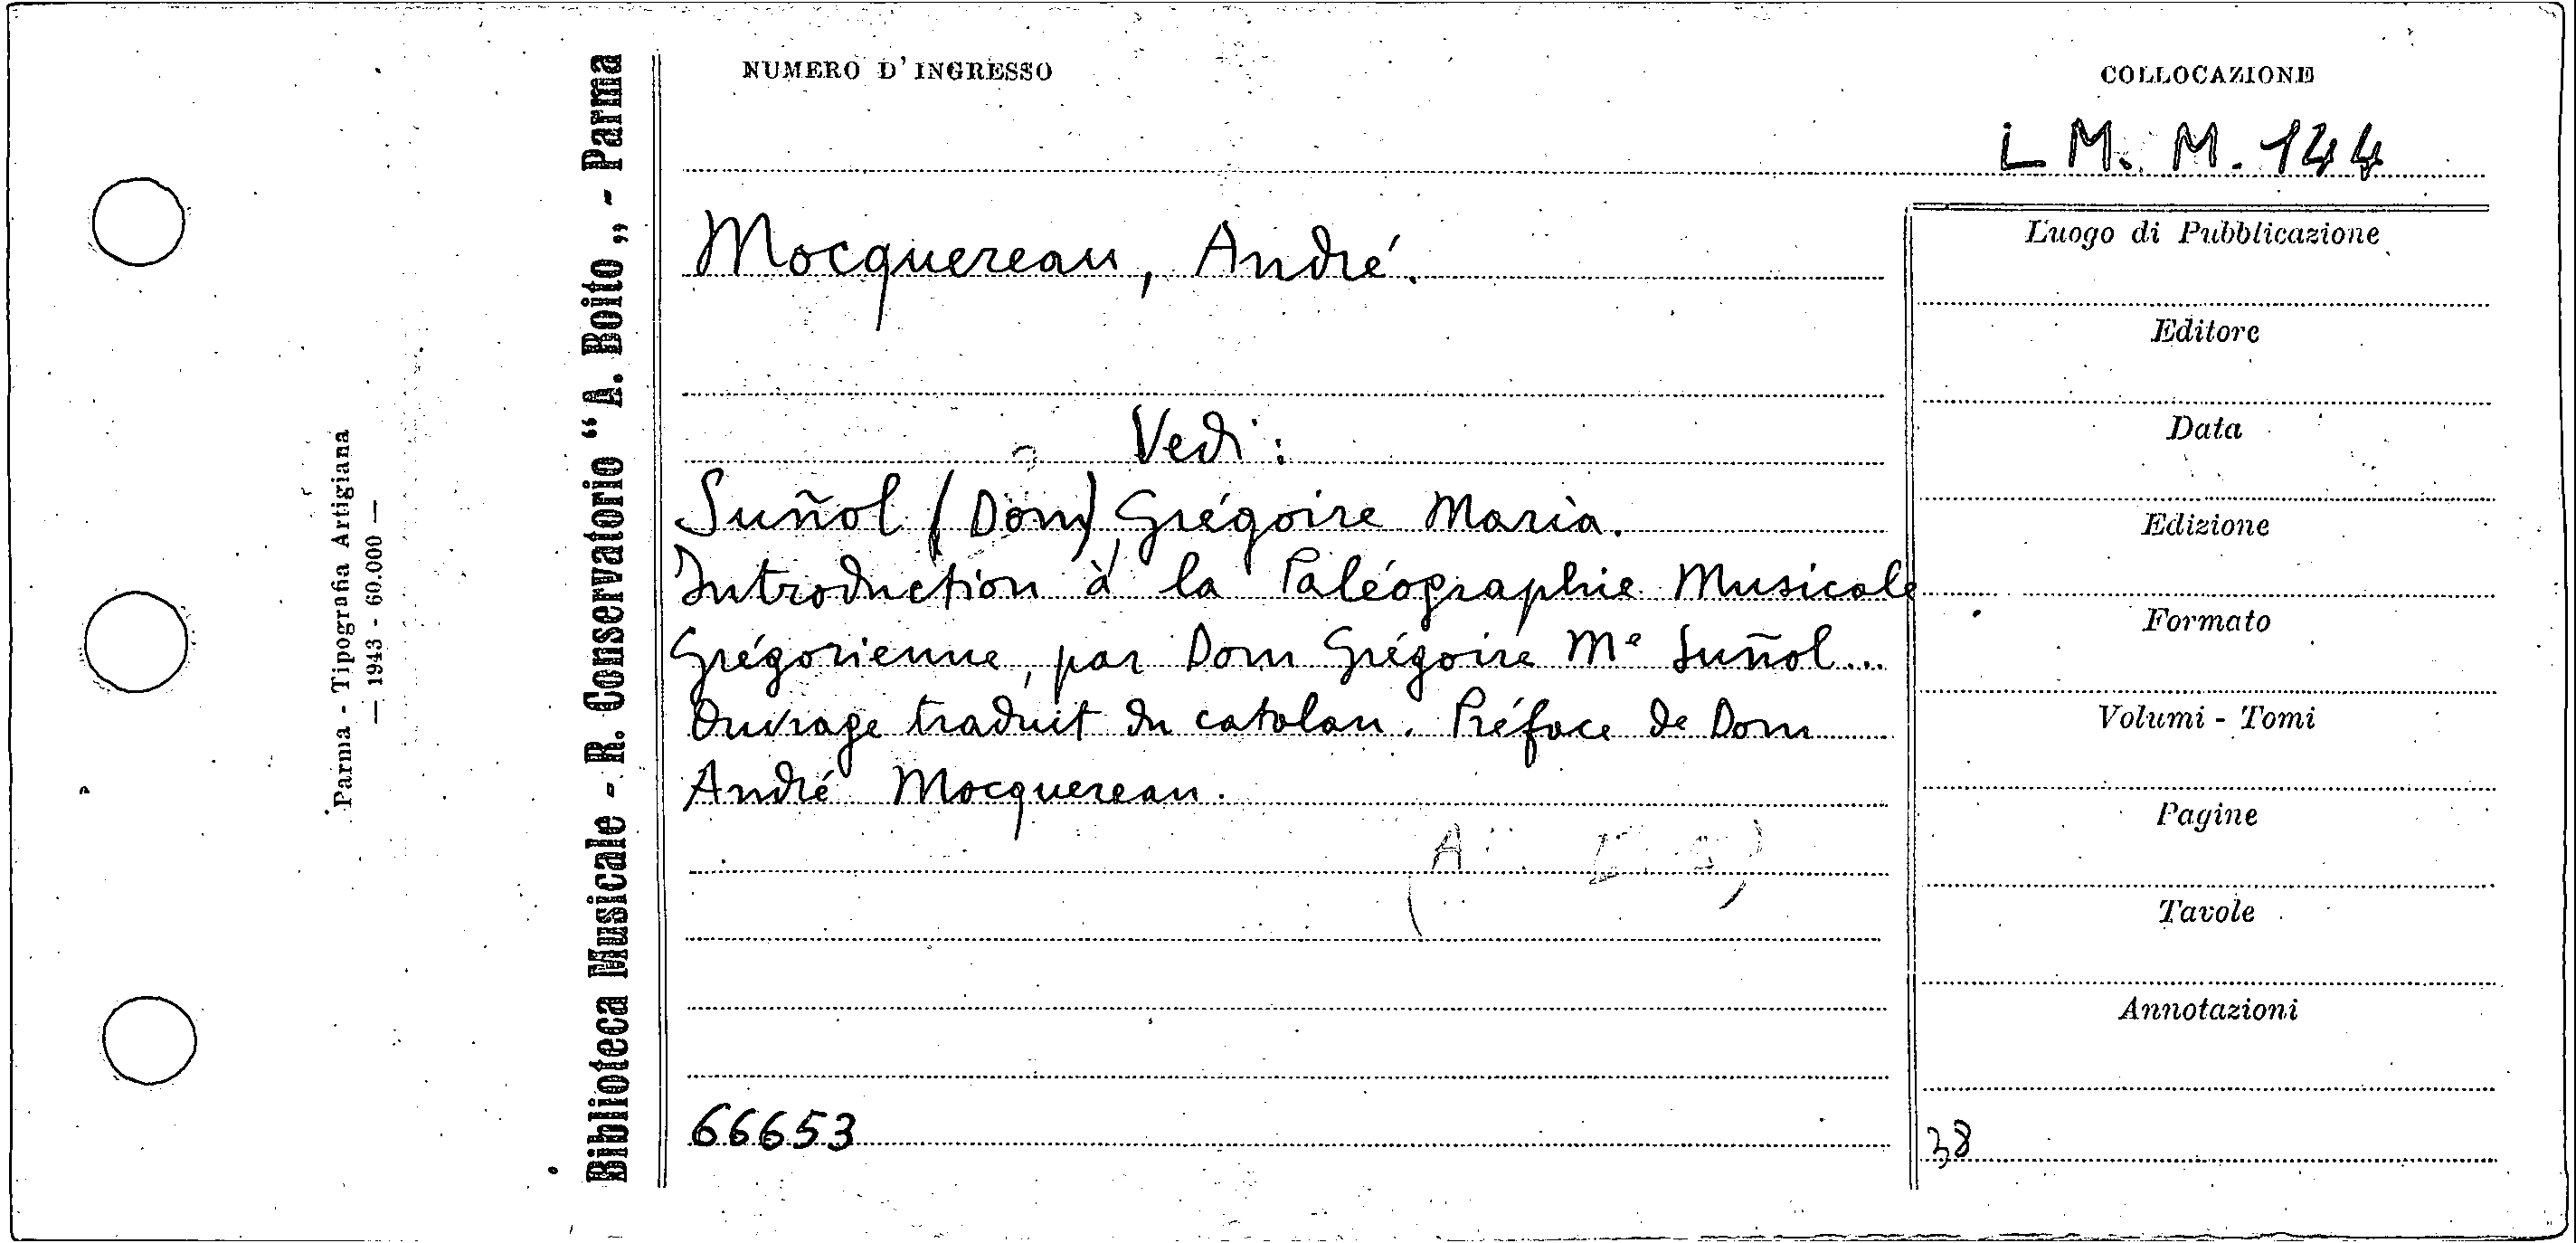 NUMERO D'INGRESSO
COLLOCAZIONE
L M. M. 144
Mocquereau, André.
Vedi:
Suñol (Dom) Grégoire Maria.
Introduction à la Paléographie Musicale
Grégorienne, par Dom Grégoire Mª Suñol...
Ouvrage traduit du catalan. Préface de Dom
André Mocquereau.
66653
Luogo di Pubblicazione
Editore
Data
Edizione
Formato
Volumi - Tomi
Pagine
Tavole
Annotazioni
38
Biblioteca Musicale - R. Conservatorio “A. Boito„ - Parma
Parma - Tipografia Artigiana
— 1943 - 60.000 —